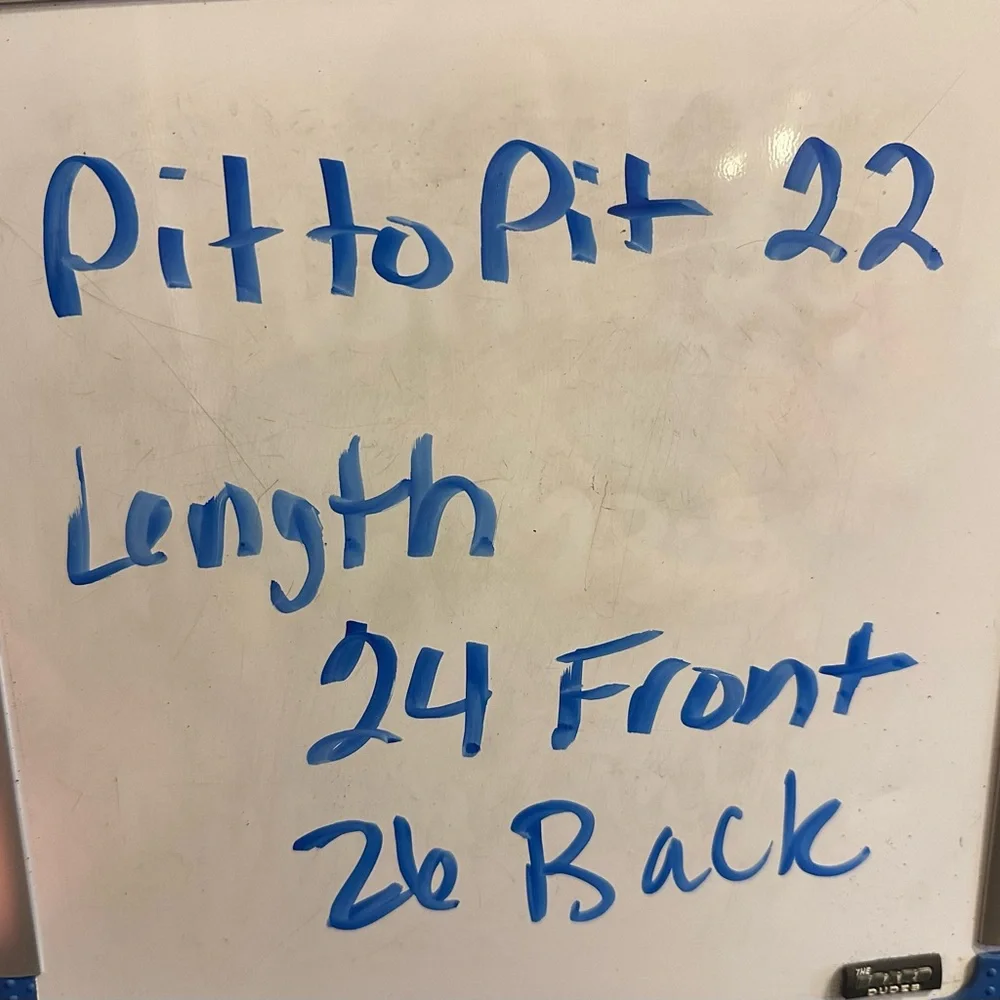 Pit to Pit 22
Length
24 Front
26 Back
THE
DUDES